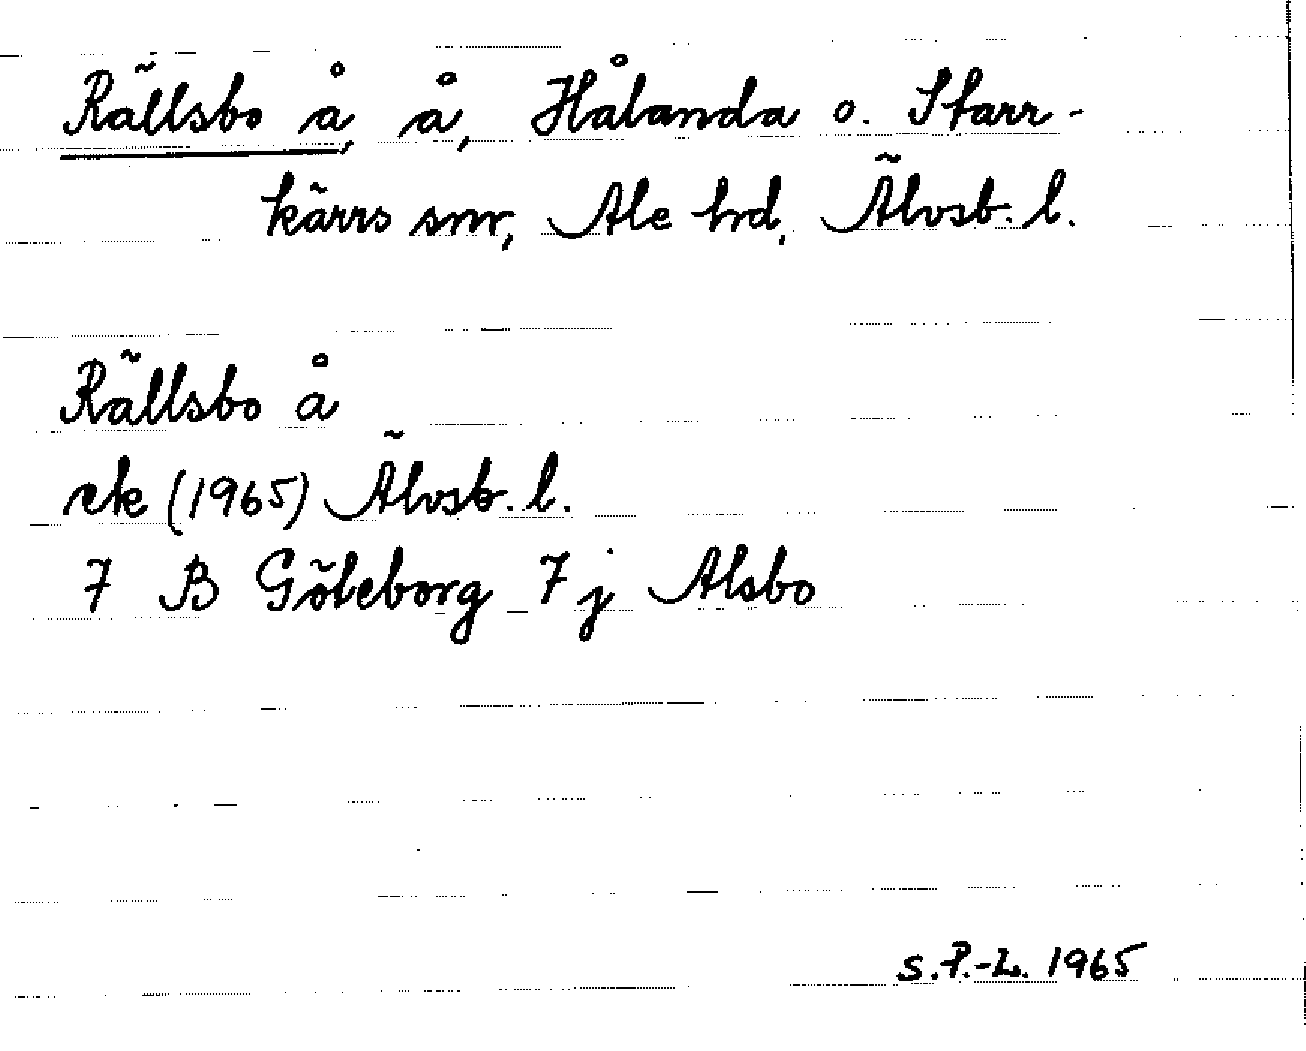 Rällsbo å, å, Hålanda o. Starr-
kärrs snr, Ale hrd, Älvsb. l.
Rällsbo å
ek (1965) Älvsb. l.
7 B Göteborg 7 j Alsbo
S.P.-L. 1965